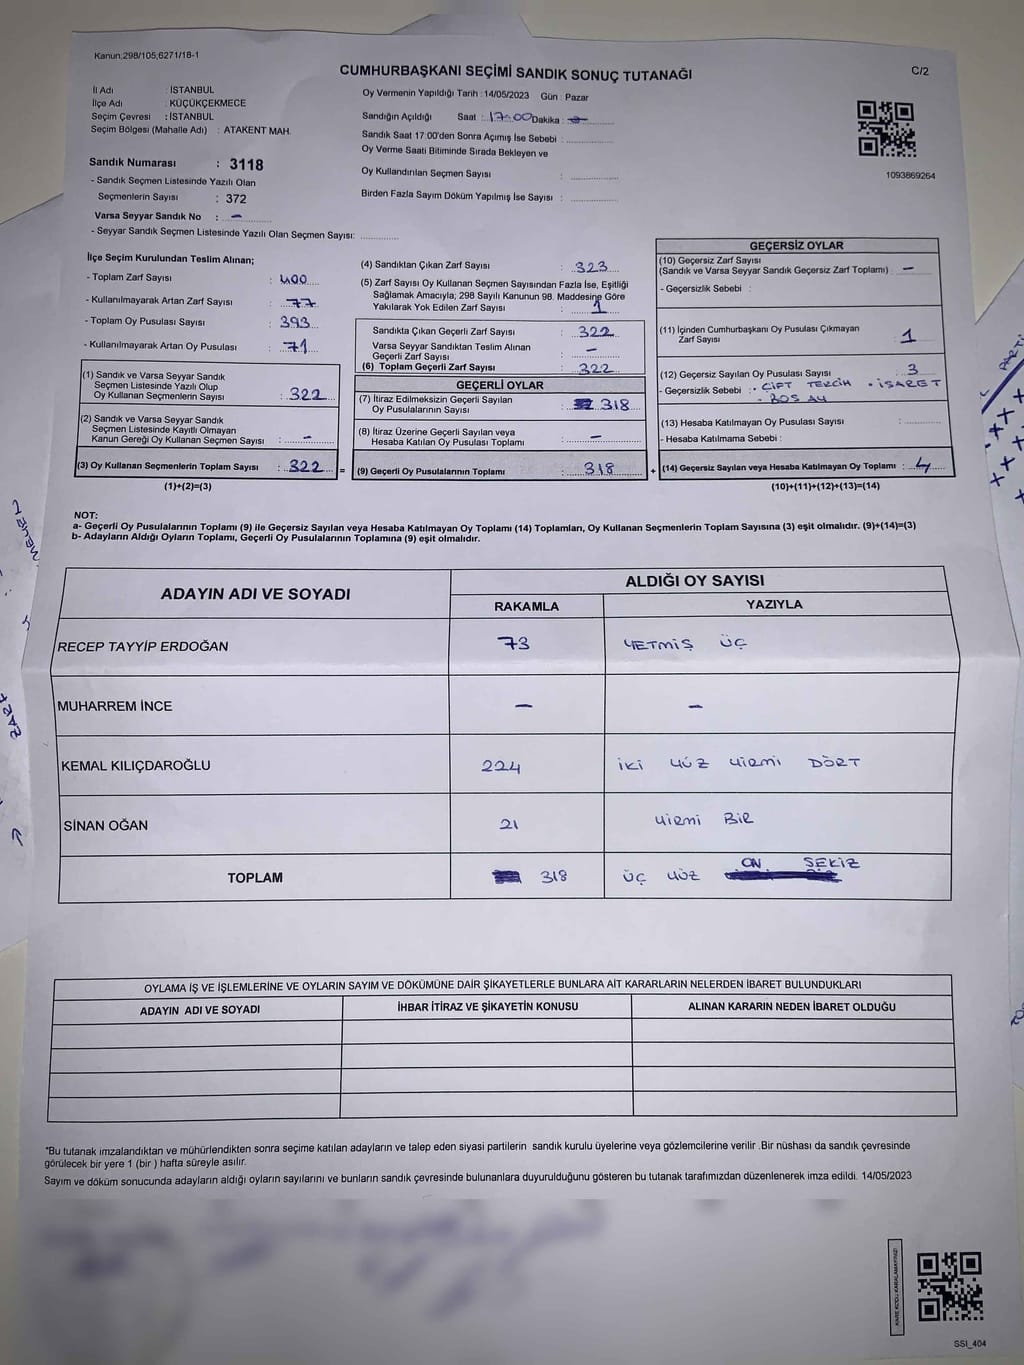 Kanun;298/105;6271/18-1
CUMHURBAŞKANI SEÇİMİ SANDIK SONUÇ TUTANAĞI
C/2
İl Adı : İSTANBUL
İlçe Adı : KÜÇÜKÇEKMECE
Seçim Çevresi : İSTANBUL
Seçim Bölgesi (Mahalle Adı) : ATAKENT MAH.
Sandık Numarası : 3118
- Sandık Seçmen Listesinde Yazılı Olan
Seçmenlerin Sayısı : 372
Varsa Seyyar Sandık No : -
- Seyyar Sandık Seçmen Listesinde Yazılı Olan Seçmen Sayısı: ............
Oy Vermenin Yapıldığı Tarih : 14/05/2023 Gün : Pazar
Sandığın Açıldığı Saat : 17:00 Dakika : -
Sandık Saat 17:00'den Sonra Açımış İse Sebebi : ............
Oy Verme Saati Bitiminde Sırada Bekleyen ve
Oy Kullandırılan Seçmen Sayısı : ............
Birden Fazla Sayım Döküm Yapılmış İse Sayısı : ............
1093869264
İlçe Seçim Kurulundan Teslim Alınan;
- Toplam Zarf Sayısı : 400
- Kullanılmayarak Artan Zarf Sayısı : 77
- Toplam Oy Pusulası Sayısı : 393
- Kullanılmayarak Artan Oy Pusulası : 71
(1) Sandık ve Varsa Seyyar Sandık
Seçmen Listesinde Yazılı Olup
Oy Kullanan Seçmenlerin Sayısı : 322
(2) Sandık ve Varsa Seyyar Sandık
Seçmen Listesinde Kayıtlı Olmayan
Kanun Gereği Oy Kullanan Seçmen Sayısı : -
(3) Oy Kullanan Seçmenlerin Toplam Sayısı : 322 =
(1)+(2)=(3)
(4) Sandıktan Çıkan Zarf Sayısı : 323
(5) Zarf Sayısı Oy Kullanan Seçmen Sayısından Fazla İse, Eşitliği
Sağlamak Amacıyla; 298 Sayılı Kanunun 98. Maddesine Göre
Yakılarak Yok Edilen Zarf Sayısı : 1
Sandıkta Çıkan Geçerli Zarf Sayısı : 322
Varsa Seyyar Sandıktan Teslim Alınan
Geçerli Zarf Sayısı : -
(6) Toplam Geçerli Zarf Sayısı : 322
GEÇERLİ OYLAR
(7) İtiraz Edilmeksizin Geçerli Sayılan
Oy Pusulalarının Sayısı : 318
(8) İtiraz Üzerine Geçerli Sayılan veya
Hesaba Katılan Oy Pusulası Toplamı : -
(9) Geçerli Oy Pusulalarının Toplamı : 318 +
GEÇERSİZ OYLAR
(10) Geçersiz Zarf Sayısı
(Sandık ve Varsa Seyyar Sandık Geçersiz Zarf Toplamı) : -
- Geçersizlik Sebebi :
(11) İçinden Cumhurbaşkanı Oy Pusulası Çıkmayan
Zarf Sayısı : 1
(12) Geçersiz Sayılan Oy Pusulası Sayısı : 3
- Geçersizlik Sebebi : • ÇİFT TERCİH • İŞARET
(13) Hesaba Katılmayan Oy Pusulası Sayısı : ............
- Hesaba Katılmama Sebebi :
(14) Geçersiz Sayılan veya Hesaba Katılmayan Oy Toplamı : 4
(10)+(11)+(12)+(13)=(14)
NOT:
a- Geçerli Oy Pusulalarının Toplamı (9) ile Geçersiz Sayılan veya Hesaba Katılmayan Oy Toplamı (14) Toplamları, Oy Kullanan Seçmenlerin Toplam Sayısına (3) eşit olmalıdır. (9)+(14)=(3)
b- Adayların Aldığı Oyların Toplamı, Geçerli Oy Pusulalarının Toplamına (9) eşit olmalıdır.
ADAYIN ADI VE SOYADI
ALDIĞI OY SAYISI
RAKAMLA YAZIYLA
RECEP TAYYİP ERDOĞAN 73 YETMİŞ ÜÇ
MUHARREM İNCE - -
KEMAL KILIÇDAROĞLU 224 İKİ YÜZ YİRMİ DÖRT
SİNAN OĞAN 21 YİRMİ BİR
TOPLAM 318 ÜÇ YÜZ ON SEKİZ
OYLAMA İŞ VE İŞLEMLERİNE VE OYLARIN SAYIM VE DÖKÜMÜNE DAİR ŞİKAYETLERLE BUNLARA AİT KARARLARIN NELERDEN İBARET BULUNDUKLARI
ADAYIN ADI VE SOYADI İHBAR İTİRAZ VE ŞİKAYETİN KONUSU ALINAN KARARIN NEDEN İBARET OLDUĞU
*Bu tutanak imzalandıktan ve mühürlendikten sonra seçime katılan adayların ve talep eden siyasi partilerin sandık kurulu üyelerine veya gözlemcilerine verilir .Bir nüshası da sandık çevresinde
görülecek bir yere 1 (bir ) hafta süreyle asılır.
Sayım ve döküm sonucunda adayların aldığı oyların sayılarını ve bunların sandık çevresinde bulunanlara duyurulduğunu gösteren bu tutanak tarafımızdan düzenlenerek imza edildi. 14/05/2023
KARE KODU KARALAMAYINIZ!
SSI_404